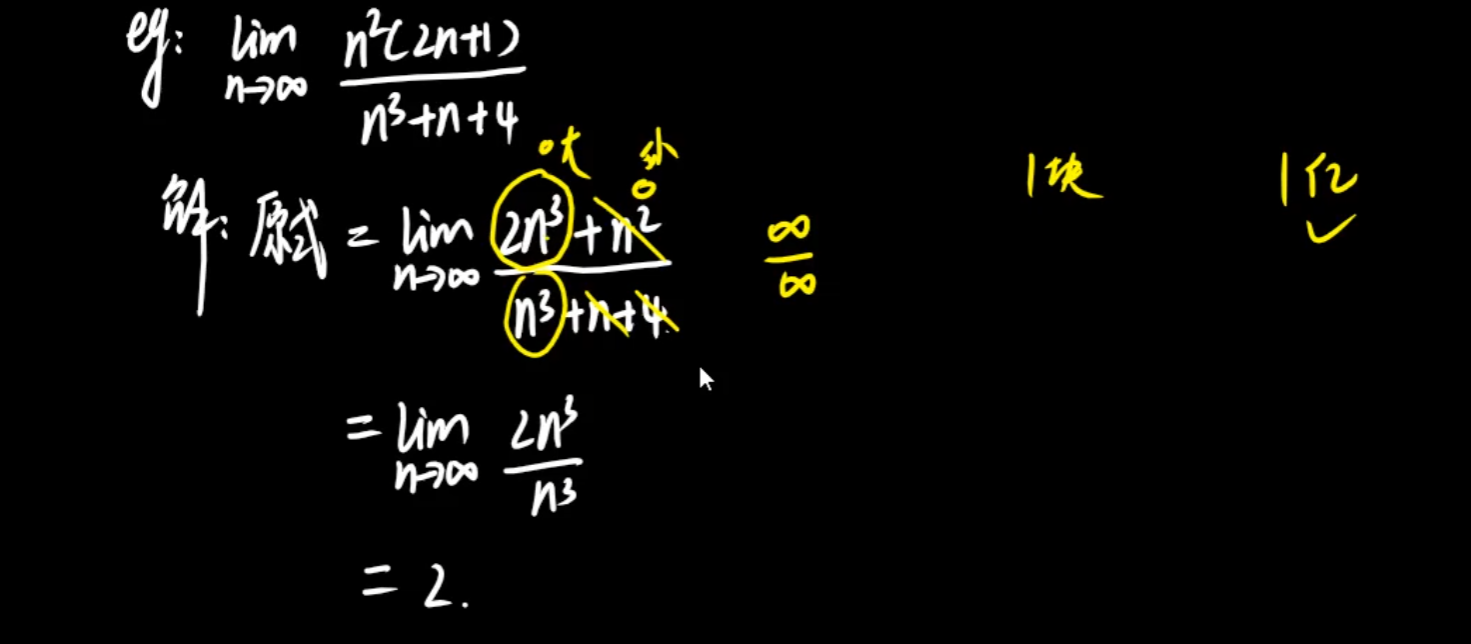 eg: lim n→∞ n²(2n+1) / n³+n+4
大 小
1块 1亿
解: 原式 = lim n→∞ 2n³+n² / n³+n+4 ∞/∞
= lim n→∞ 2n³ / n³
= 2.